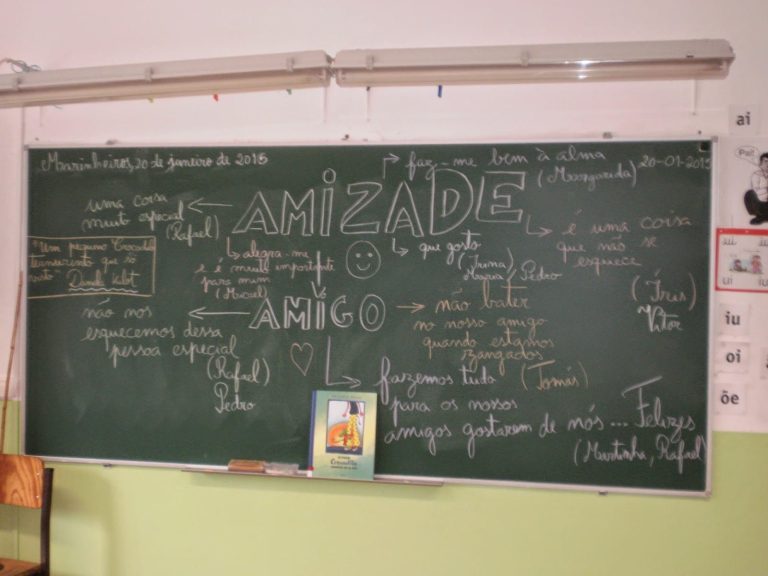 Marinheiros, 20 de janeiro de 2015
faz-me bem à alma
(Margarida)
20-01-2015
uma coisa
muito especial
(Rafael)
AMIZADE
é uma coisa
que não se
esquece
(Íris)
Vitor
"Um pequeno Crocodilo
ternurento que só
visto"
alegra-me
e é muito importante
para mim
que gosto
Pedro
AMIGO
não nos
esquecemos dessa
pessoa especial
(Rafael)
Pedro
não bater
no nosso amigo
quando estamos
zangados
(Tomás)
fazemos tudo
para os nossos
amigos gostarem de nós... Felizes
(Martinha, Rafael)
Crocodilo
ai
Pai!
ui
iu
ui
iu
iu
oi
õe